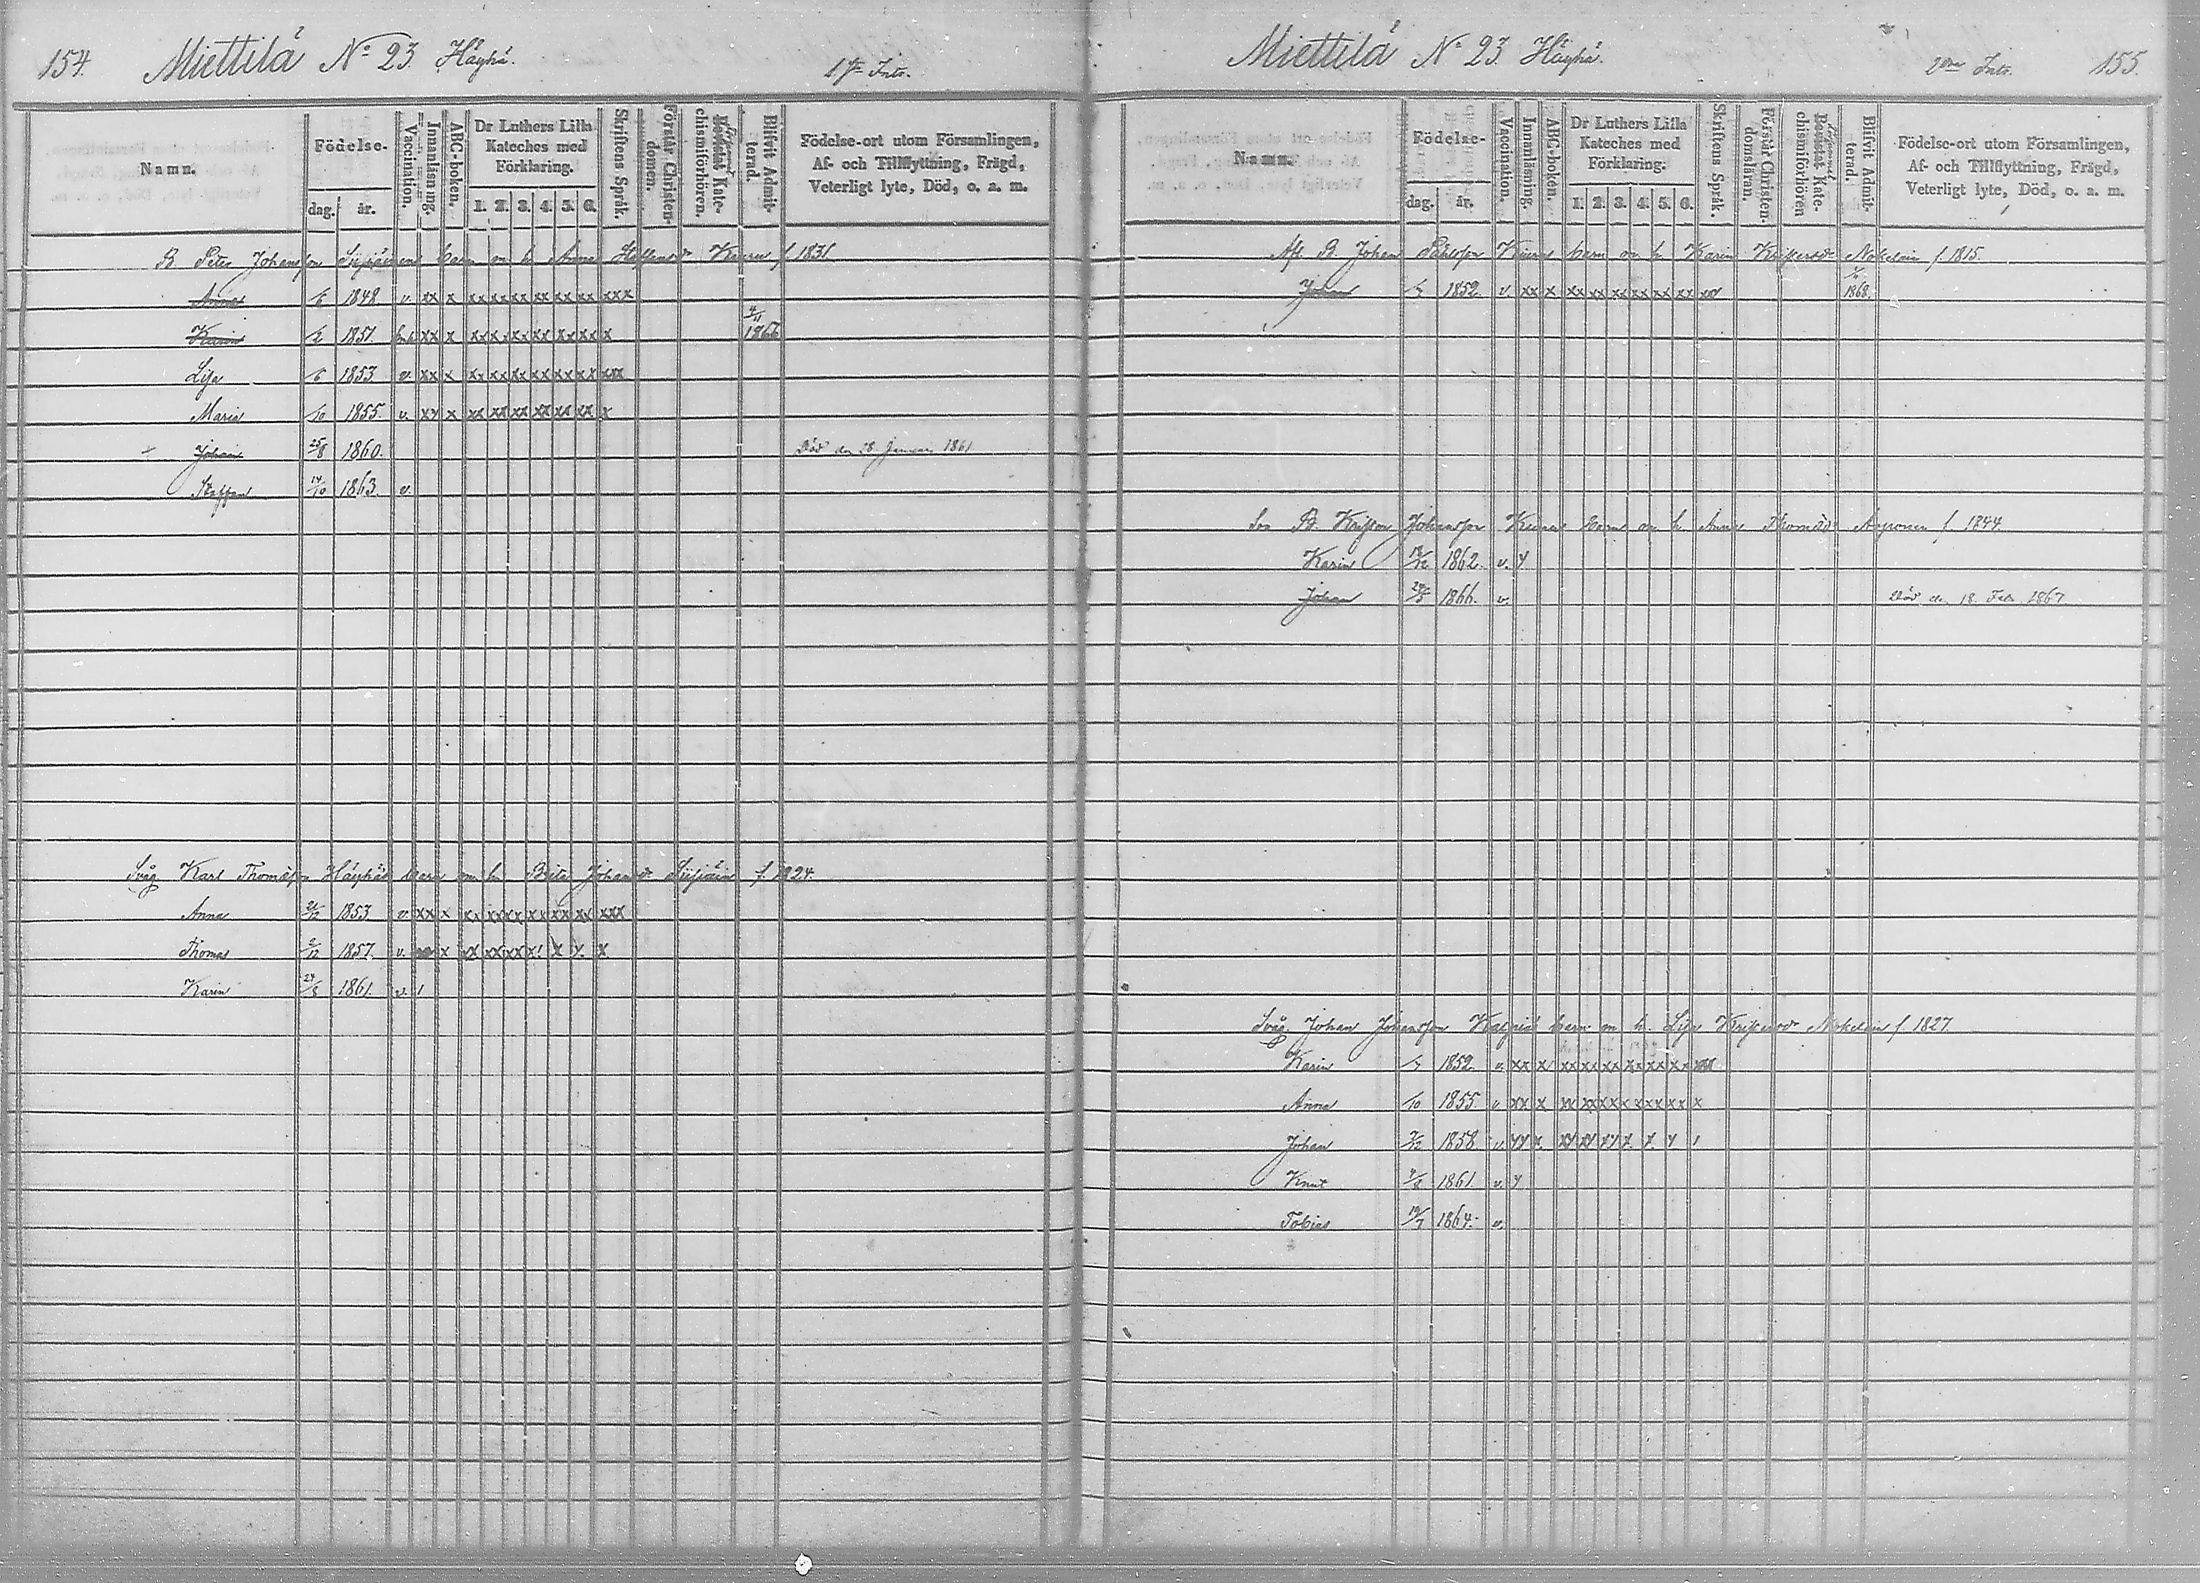 154. Miettilä No 23. Häyhä. 1sta Intr.
Namn.
Födelse-
dag. år.
Vaccination.
Innanläsning.
ABC-boken.
Dr Luthers Lilla Kateches med Förklaring.
1. 2. 3. 4. 5. 6.
Skriftens Språk.
Förstår Christendomen.
Katechismiförhören.
Blifvit Admitterad.
Födelse-ort utom Församlingen, Af- och Tillflyttning, Frägd, Veterligt lyte, Död, o. a. m.
B. Peter Johansson barn m h Anna f 1831
Anna /6 1848 v. xx x xx xx xx xx xx xx xxx
Karin /2 1851 xx x xx xx xx xx xx xx x 4/11 1866
Lisa /6 1853 v. xx x xx xx xx xx xx xx xxx
Maria /10 1855. v. xx x xx xx xx xx xx xx x
Johan 25/8 1860. Död den 28 Januari 1861
Staffan 14/10 1863. v.
Svåg. Karl Thomasson Häyhäs barn m h Brita Johansdr f. 1824.
Anna 21/12 1853 v. xx x xx xx xx xx xx xx xxx
Thomas 2/12 1857. v. x xx xx xx x! x x. x
Karin 24/8 1861. v. 1
Miettilä No 23. Häyhä. 2dra Intr. 155.
Namn.
Födelse-
dag. år.
Vaccination.
Innanläsning.
ABC-boken.
Dr Luthers Lilla Kateches med Förklaring.
1. 2. 3. 4. 5. 6.
Skriftens Språk.
Förstår Christendomsläran.
Katechismiförhören
Blifvit Admitterad.
Födelse-ort utom Församlingen, Af- och Tillflyttning, Frägd, Veterligt lyte, Död, o. a. m.
Afl. B. Johan barn m h Karin Nokelain f 1815.
Johan /7 1852. v. xx x xx xx xx xx xx xx xx 1868.
Son B. Johansson barn m h Anna Thomasdr f. 1844.
Karin /12 1862. v. y
Johan /5 1866. v. Död den 18 Febr. 1867
Svåg. Johan Johansson barn m. h. Lisa Nokelain f. 1827.
Karin /7 1852 v. xx x xx xx xx xx xx xx xxx
Anna /10 1855. v. xx x xx xx xx xx xx xx x
Johan 7/12 1858 v. yy x. xy xy xy x. x. y 1
Knut 4/8 1861. v. y
Tobias 19/7 1864. v.